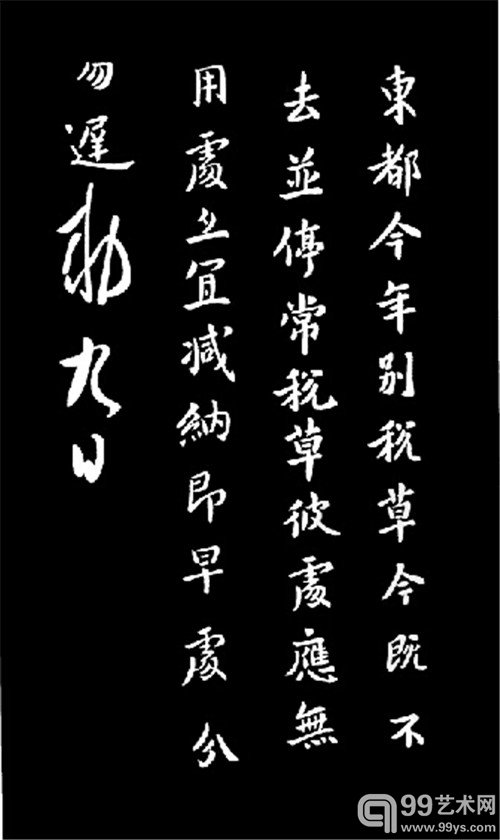 東都今年別稅草今既不
去並停常稅草彼處應無
用處亦宜減納即早處分
勿遲勅九日
99艺术网
www.99ys.com